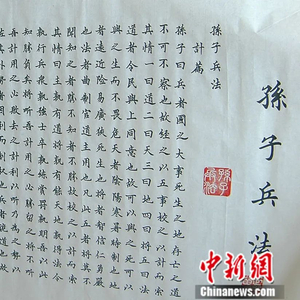 孫子兵法
孫子兵法
計篇
孫子曰兵者國之大事死生之地存亡之道
不可不察也故經之以五事校之以計而索
其情一曰道二曰天三曰地四曰將五曰法
道者令民與上同意也故可以與之死可以
與之生而不畏危天者陰陽寒暑時制也地
者遠近險易廣狹死生也將者智信仁勇嚴
也法者曲制官道主用也凡此五者將莫不
聞知之者勝不知者不勝故校之以計而索
其情曰主孰有道將孰有能天地孰得法令
孰行兵衆孰強士卒孰練賞罰孰明吾以此
知勝負矣將聽吾計用之必勝留之將不聽
中新网
www.chinanews.com